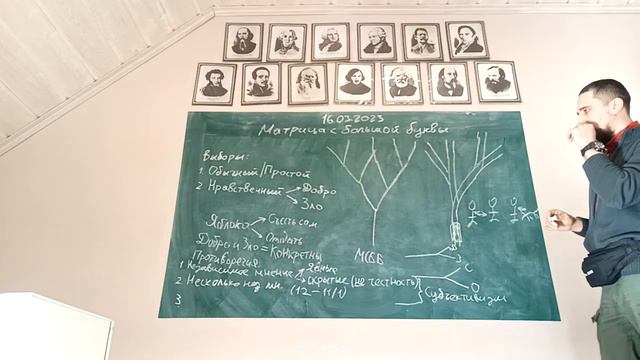 16.03.2023
Матрица с большой буквы
Выборы:
1. Обычный/Простой
2 Нравственный
Добро
Зло
Яблоко
Съесть сам
Отдать
Добро и Зло = Конкретны
Противоречия
1 Независимое мнение
Явные
скрытые (не честность)
2 Несколько
(12-11/1)
3
МСББ
С
О
Субъективизм